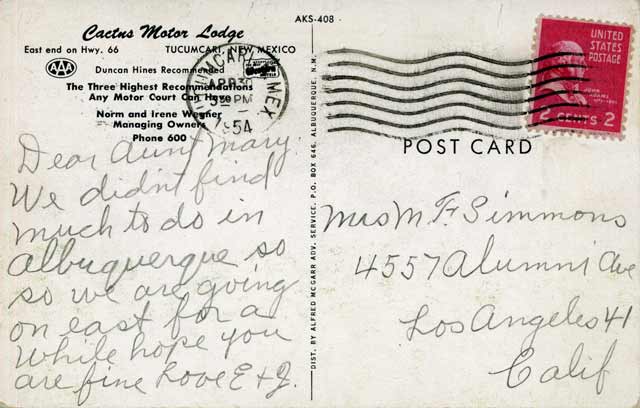 AKS-408
Cactus Motor Lodge
East end on Hwy. 66 TUCUMCARI, NEW MEXICO
AAA
Duncan Hines Recommended
The Three Highest Recommendations
Any Motor Court Can Have
Norm and Irene Wegner
Managing Owners
Phone 600
TUCUMCARI N MEX
APR 30
PM
1954
UNITED
STATES
POSTAGE
JOHN
ADAMS
2 CENTS 2
POST CARD
Dear Aunt Mary
We didn't find
much to do in
Albuquerque so
so we are going
on east for a
while hope you
are fine Love E + J.
DIST. BY ALFRED MCGARR ADV. SERVICE, P.O. BOX 646, ALBUQUERQUE, N.M.
Mrs M. F. Simmons
4557 Alumni Ave
Los Angeles 41
Calif